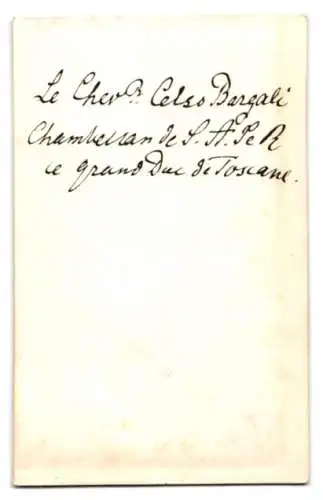 Le Chevr. Celso Bargali
Chambellan de S. A. I e R
le grand Duc de Toscane.